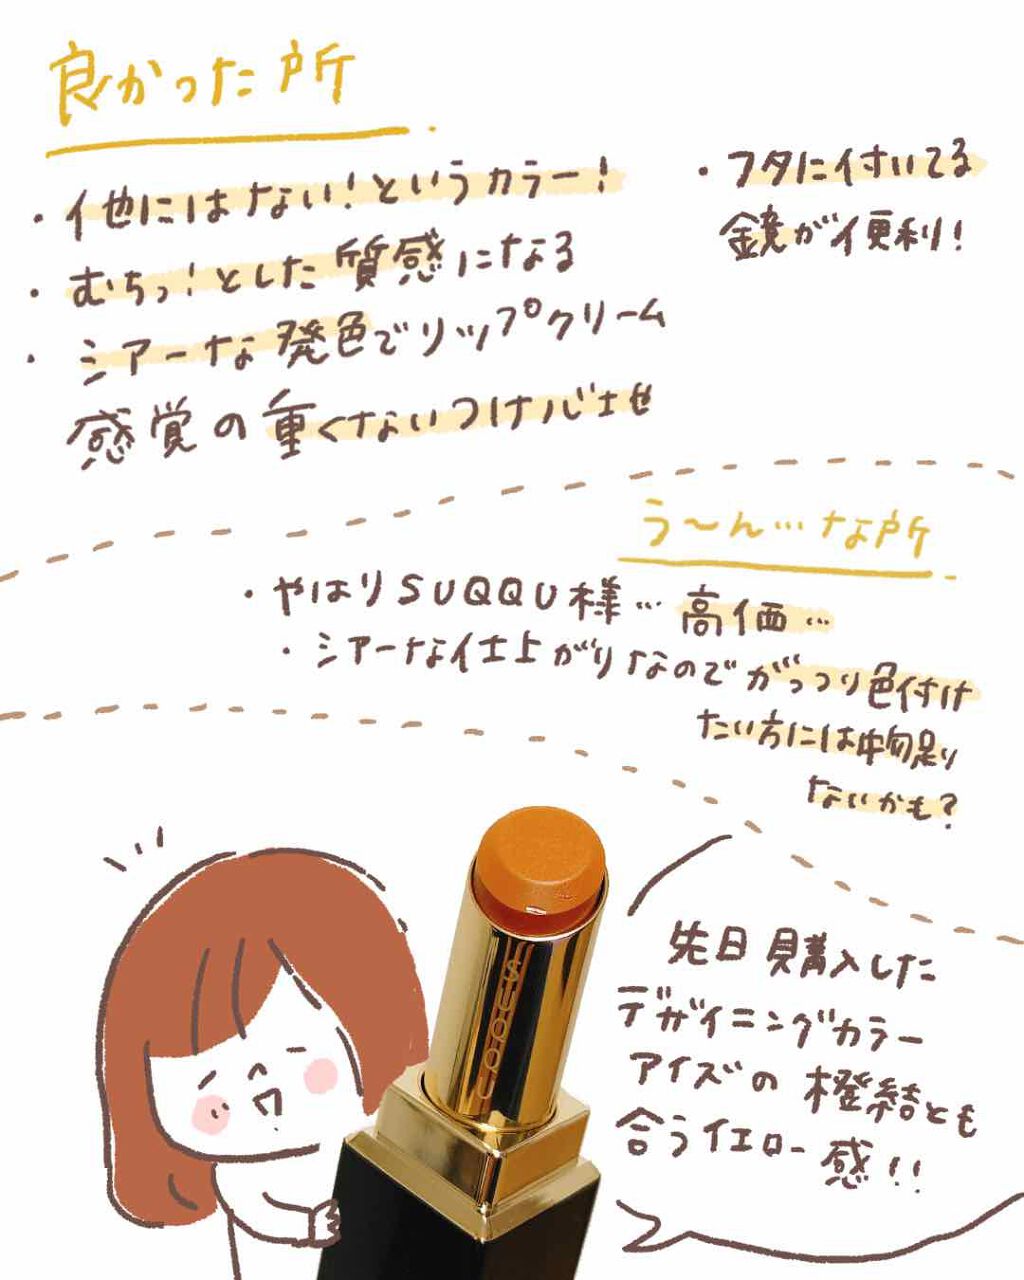 良かった所
・他にはない!というカラー!
・むちっ!とした質感になる
・シアーな発色でリップクリーム
感覚の重くないつけ心地
・フタに付いてる
鏡が便利!
う〜ん…な所
・やはりSUQQU様…高価…
・シアーな仕上がりなのでがっつり色付け
たい方には物足り
ないかも?
SUQQU
先日購入した
デザイニングカラー
アイズの橙結とも
合うイエロー感!!